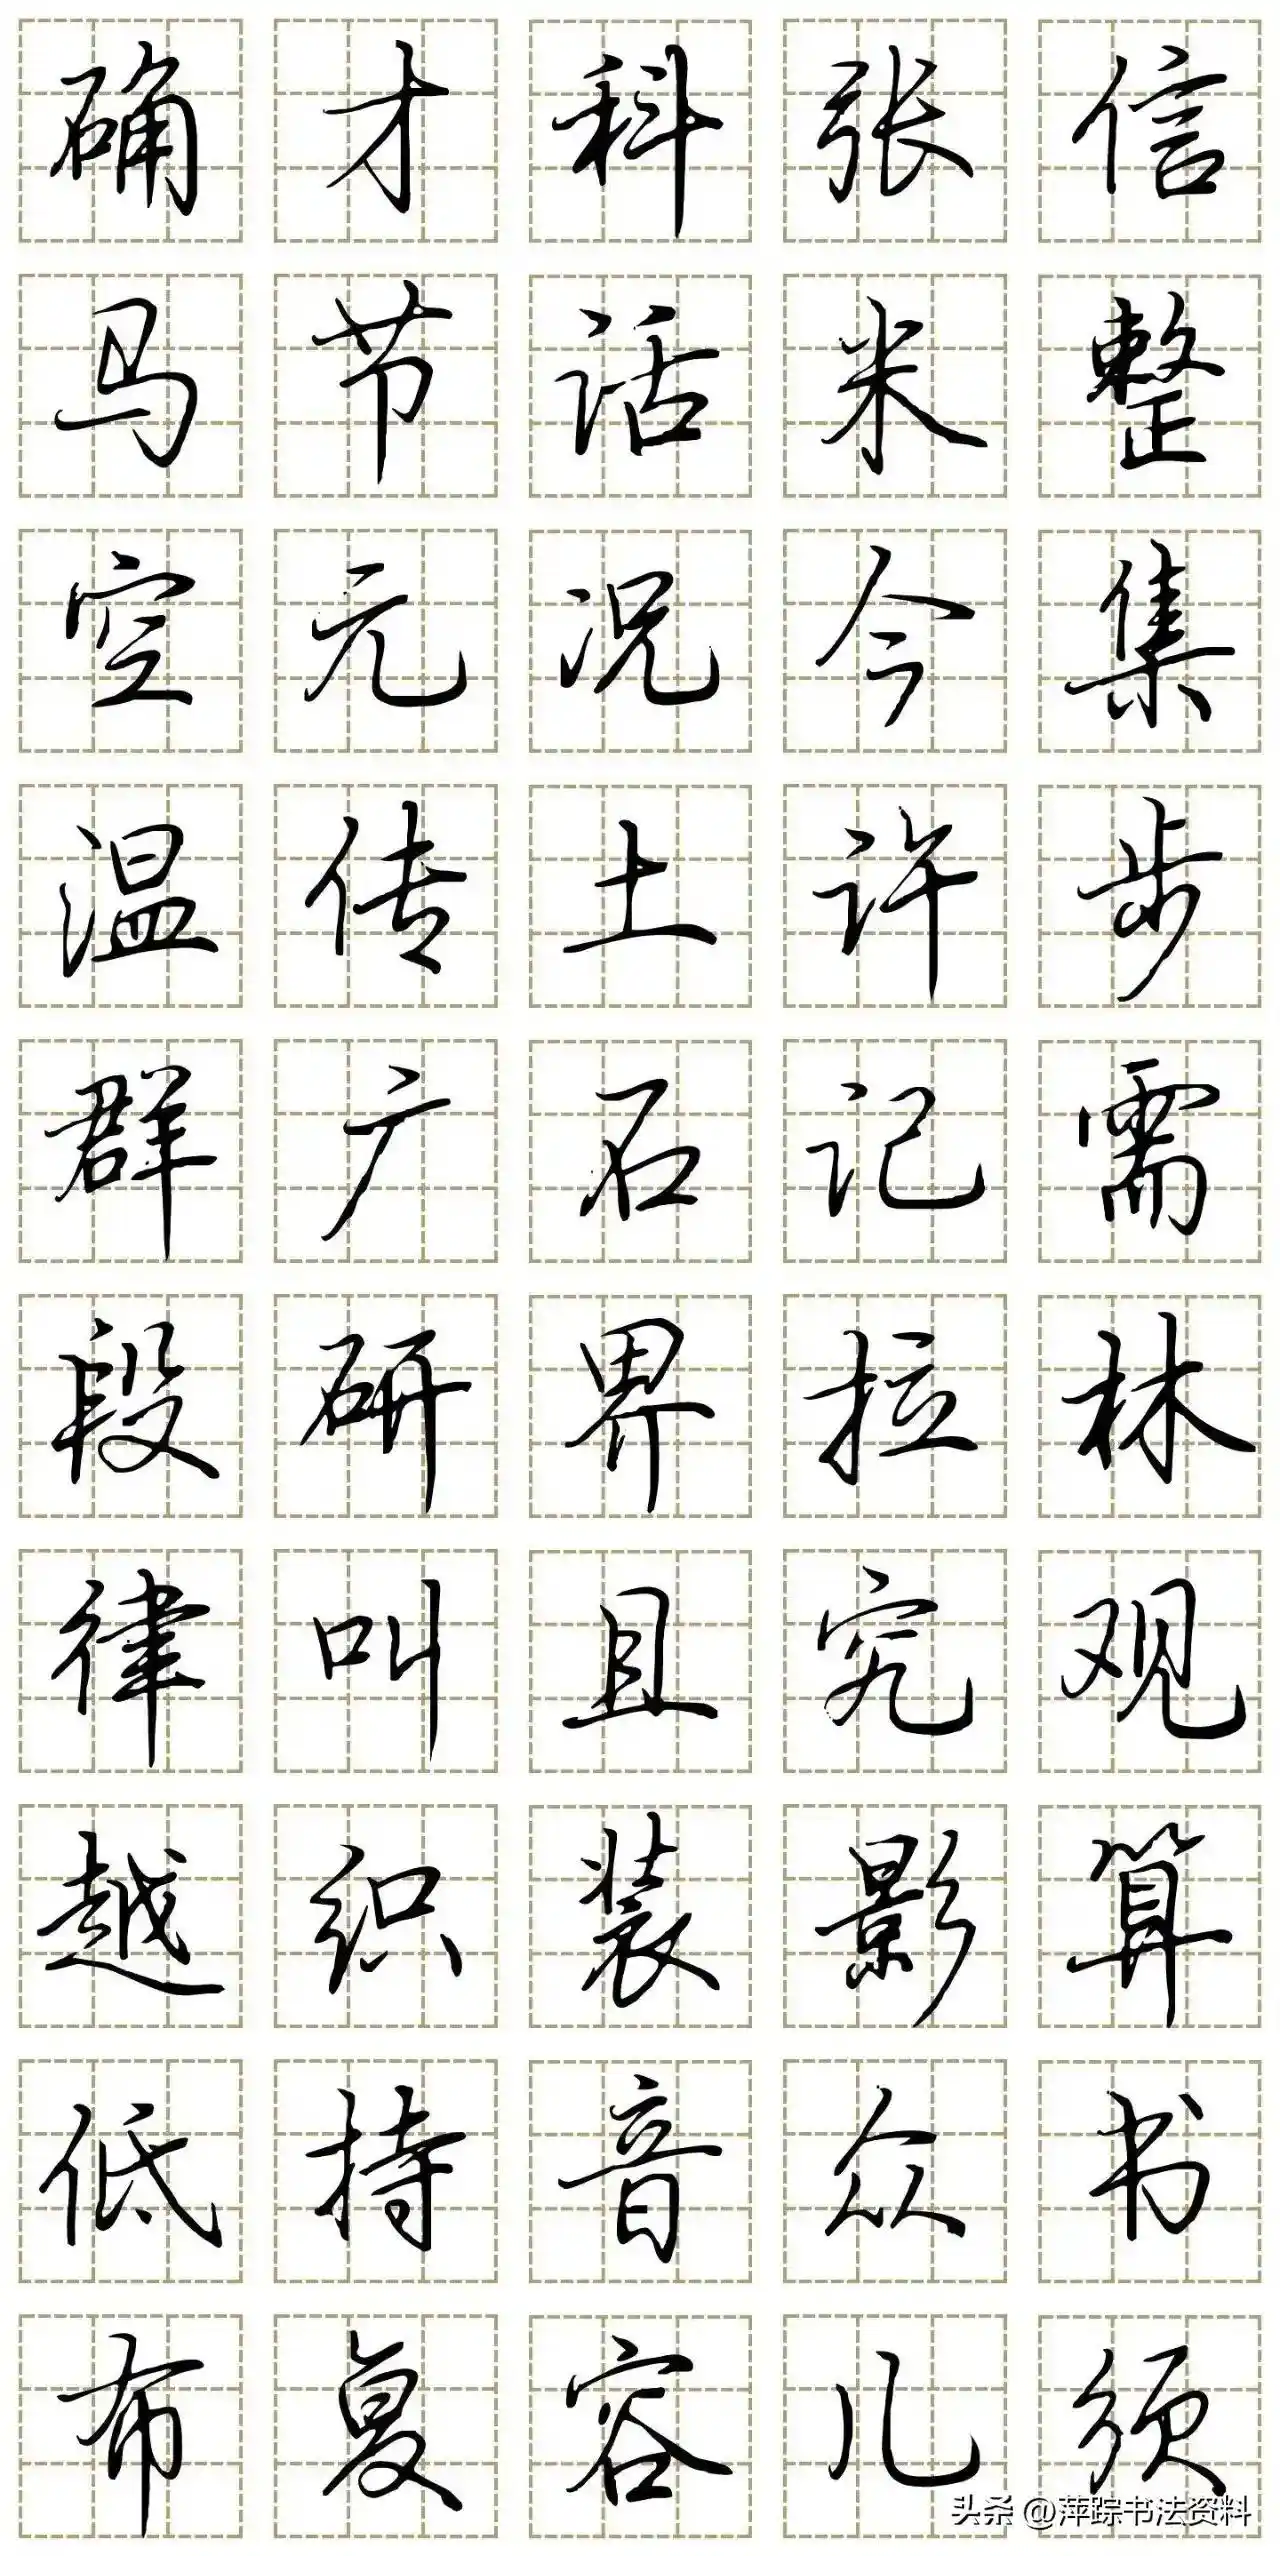 确才科张信
马节话米整
空元况今集
温传土许步
群广石记需
段研界拉林
律叫且究观
越织装影算
低持音众书
布复容儿须
头条 @萍踪书法资料